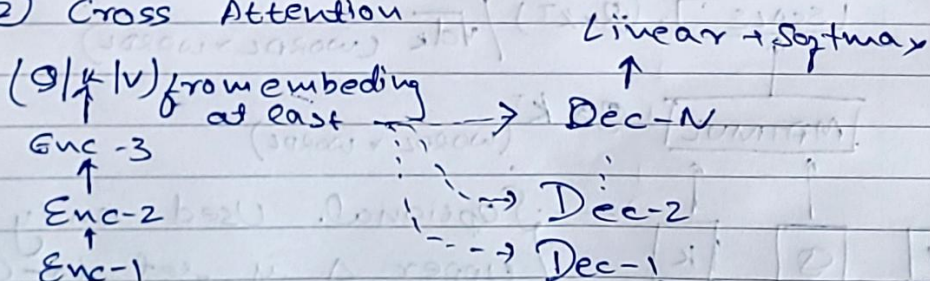 2) Cross Attention
Linear + Softmax
(Q|K|V) from embeding
at last
Dec-N
Enc-3
Enc-2
Dec-2
Enc-1
Dec-1